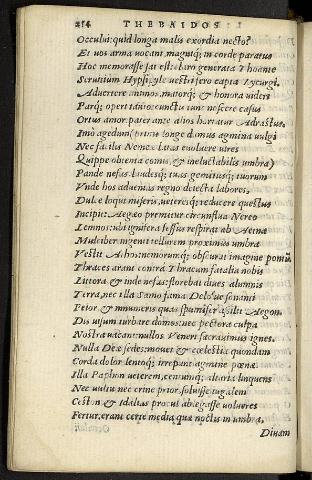 214 THEBAIDOS
Occului: quid longa malis exordia necto?
Et uos arma uocant, magnúq; in corde paratus
Hoc memorasse sat est: claro generata Thoante
Seruitium Hypsipyle uestri fero capta Lycurgi.
Aduertere animos, maiorq; & honora uideri
Parq; operi tanto: cunctis tunc noscere casus
Ortus amor, pater ante alios hortatur Adrastus.
Imò age dum (primo longè damus agmina uulgi
Nec facilis Nemee latas euoluere uires
Quippe obtenta comis, & ineluctabilis umbra)
Pande nefas, laudesq; tuas, gemitusq; tuorum
Vnde hos aduenias regno deiecta labores,
Dulce loqui miseris, ueteresq; reducere questus
Incipit: Aegæo premitur circunflua Nereo
Lemnos: ubi ignifera fessus respirat ab Aetna
Mulciber: ingenti tellurem proximus umbra
Vestit Athos: nemorumq; obscurat imagine pontũ
Thraces arant contrà: Thracum fatalia nobis
Littora & inde nefas: florebat diues alumnis
Terra, nec illa Samo fama Delo ue sonanti
Peior & innumeris quas spumifer assilit Aegon.
Dis uisum turbare domos: nec pectora culpa
Nostra uacant: nullos Veneri sacrauimus ignes.
Nulla Deæ sedes: mouet & cœlestia quondam
Corda dolor lentoq; irrepunt agmine pœnæ.
Illa Paphon ueterem, centumq; altaria linquens
Nec uultu nec crine prior, soluisse iugalem
Ceston, & Idalias procul ablegasse uolucres
Fertur, erant certè media, quæ noctis in umbra,
Diuam